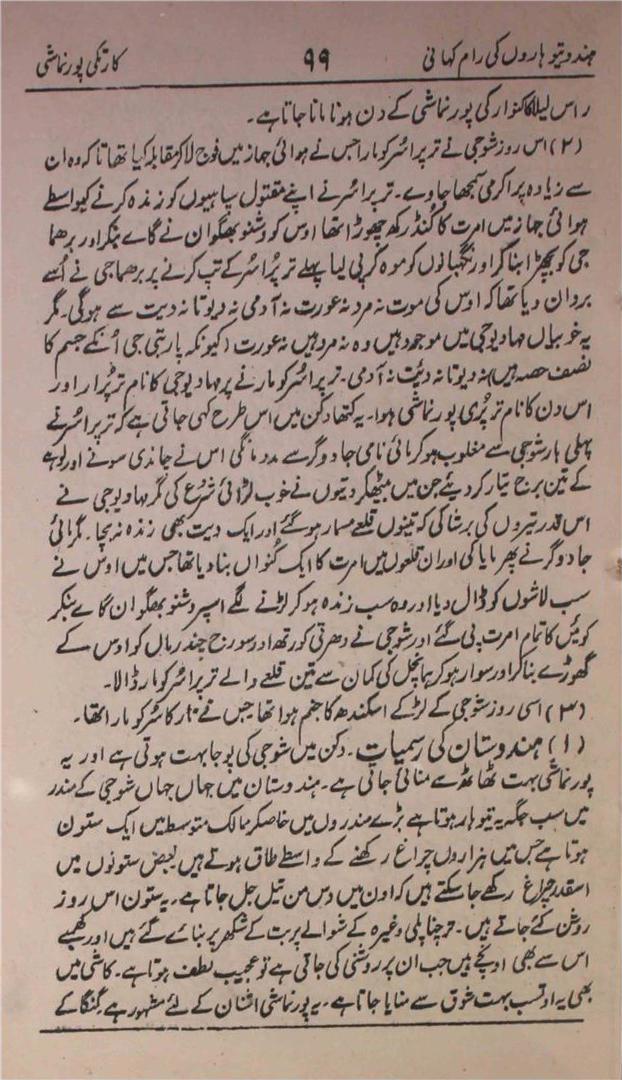 ہندو تیوہاروں کی رام کہانی ۹۹ کارتکی پورنماشی
راس لیلا کا کنوار کی پورنماشی کے دن ہونا مانا جاتا ہے۔
(۲) اس روز شوجی نے ترپراسُر کو مارا جس نے ہوائی جہاز میں فوج لاکر مقابلہ کیا تھا تاکہ وہ ان
سے زیادہ پراکرمی سمجھا جاوے۔ ترپراسُر نے اپنے مقتول سپاہیوں کو زندہ کرنے کیواسطے
ہوائی جہاز میں امرت کا کُنڈ رکھ چھوڑا تھا اوس کو وشنو بھگوان نے گاے بنکر اور برھما
جی کو بچھڑا بنا کر اور نگہبانوں کو موہ کر پی لیا پہلے ترپُراسُر کے تپ کرنے پر برھما جی نے اُسے
بردان دیا تھا کہ اوس کی موت نہ مرد نہ عورت نہ آدمی نہ دیوتا نہ دیت سے ہوگی۔ مگر
یہ خوبیاں مہادیوجی میں موجود ہیں وہ نہ مرد ہیں نہ عورت (کیونکہ پاربتی جی اُنکے جسم کا
نصف حصہ ہیں) نہ دیوتا نہ دیئت نہ آدمی۔ ترپراسُر کو مارنے پر مہادیوجی کا نام ترپُرار اور
اس دن کا نام ترپُری پورنماشی ہوا۔ یہ کتھا دکن میں اس طرح کہی جاتی ہے کہ ترپراسُر نے
پہلی بار شوجی سے مغلوب ہوکر مائی نامی جادوگر سے مدد مانگی اس نے چاندی سونے اور لوہے
کے تین برج تیار کر دیئے جن میں بیٹھکر دیتوں نے خوب لڑائی شرُع کی مگر مہادیوجی نے
اس قدر تیروں کی برشا کی کہ تینوں قلعے مسمار ہوگئے اور ایک دیت بھی زندہ نہ بچا۔ مگر مائی
جادوگر نے پھر مایا کی اور ان قلعوں میں امرت کا ایک کُنواں بنادیا تھا جس میں اوس نے
سب لاشوں کو ڈال دیا اور وہ سب زندہ ہوکر لڑنے لگے اسپر وشنو بھگوان گاے بنکر
کوئیں کا تمام امرت پی گئے اور شوجی نے دھرتی کو رتھ اور سورج چندرماں کو اوس کے
گھوڑے بنا کر اور سوار ہوکر ہمانچل کی کمان سے تین قلعے والے ترپراسُر کو مار ڈالا۔
(۳) اسی روز شوجی کے لڑکے اسکندھ کا جنم ہوا تھا جس نے تارکاسُر کو مارا تھا۔
(۱) ہندوستان کی رسمیات۔ دکن میں شوجی کی پوجا بہت ہوتی ہے اور یہ
پورنماشی بہت ٹھاٹھ سے منائی جاتی ہے۔ ہندوستان میں جہاں جہاں شوجی کے مندر
میں سب جگہ یہ تیوہار ہوتا ہے بڑے مندروں میں خاصکر ممالک متوسط میں ایک ستون
ہوتا ہے جس میں ہزاروں چراغ رکھنے کے واسطے طاق ہوتے ہیں بعض ستونوں میں
اسقدر چراغ رکھے جاسکتے ہیں کہ اون میں دس من تیل جل جاتا ہے۔ یہ ستون اس روز
روشن کئے جاتے ہیں۔ ترچناپلی وغیرہ کے شوالے پربت کے شکھر پر بنائے گئے ہیں اور کھمبے
اس سے بھی اونچے ہیں جب ان پر روشنی کی جاتی ہے تو عجیب لطف ہوتا ہے۔ کاشی میں
بھی یہ اوتسب بہت شوق سے منایا جاتا ہے۔ یہ پورنماشی اشنان کے لئے مشہور ہے گنگا کے